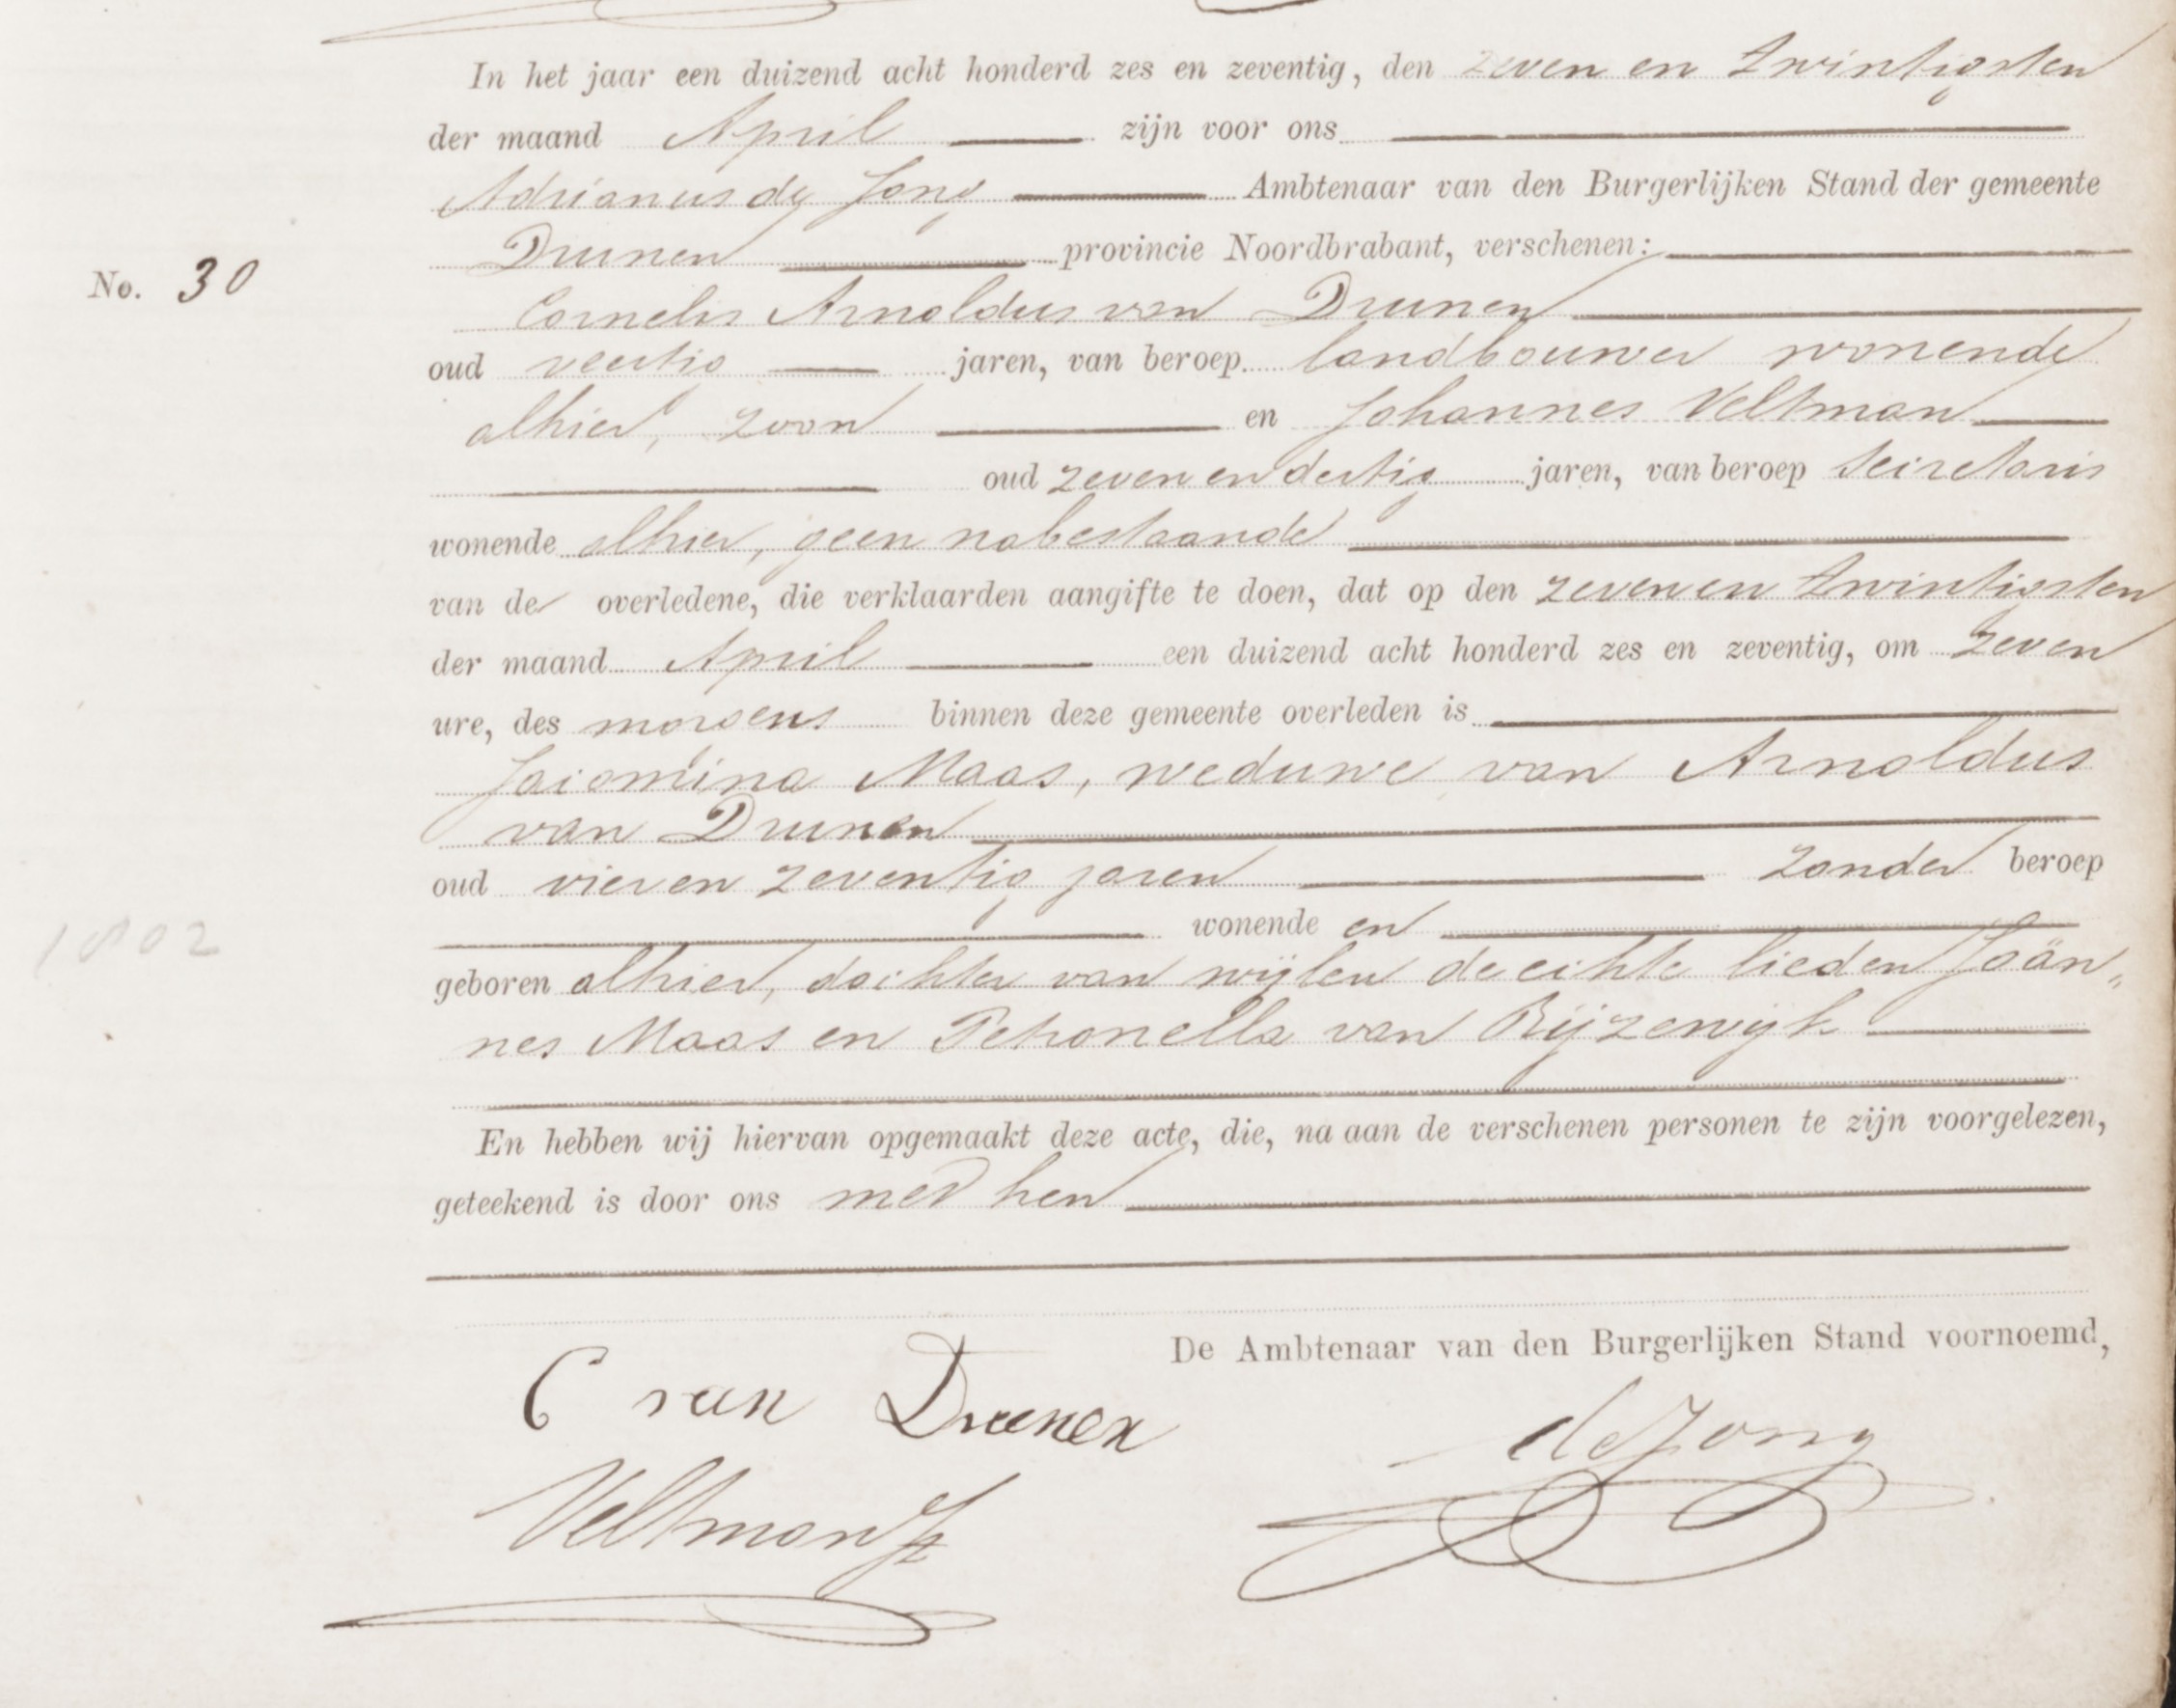 In het jaar een duizend acht honderd zes en zeventig, den zeven en twintigsten
der maand April zijn voor ons
Adrianus de Jong Ambtenaar van den Burgerlijken Stand der gemeente
Drunen provincie Noordbrabant, verschenen:
No. 30
Cornelis Arnoldus van Drunen
oud veertig jaren, van beroep landbouwer wonende
alhier, zoon en Johannes Veltman
oud zeven en dertig jaren, van beroep secretaris
wonende alhier, geen nabestaande
van de overledene, die verklaarden aangifte te doen, dat op den zeven en twintigsten
der maand April een duizend acht honderd zes en zeventig, om zeven
ure, des morgens binnen deze gemeente overleden is
Jacomina Maas, weduwe van Arnoldus
van Drunen
oud vier en zeventig jaren zonder beroep
1802
wonende en
geboren alhier, dochter van wijlen de echte lieden Joän„
nes Maas en Petronella van Rijzewijk
En hebben wij hiervan opgemaakt deze acte, die, na aan de verschenen personen te zijn voorgelezen,
geteekend is door ons met hen
De Ambtenaar van den Burgerlijken Stand voornoemd,
C van Drunen
de Jong
Veltman